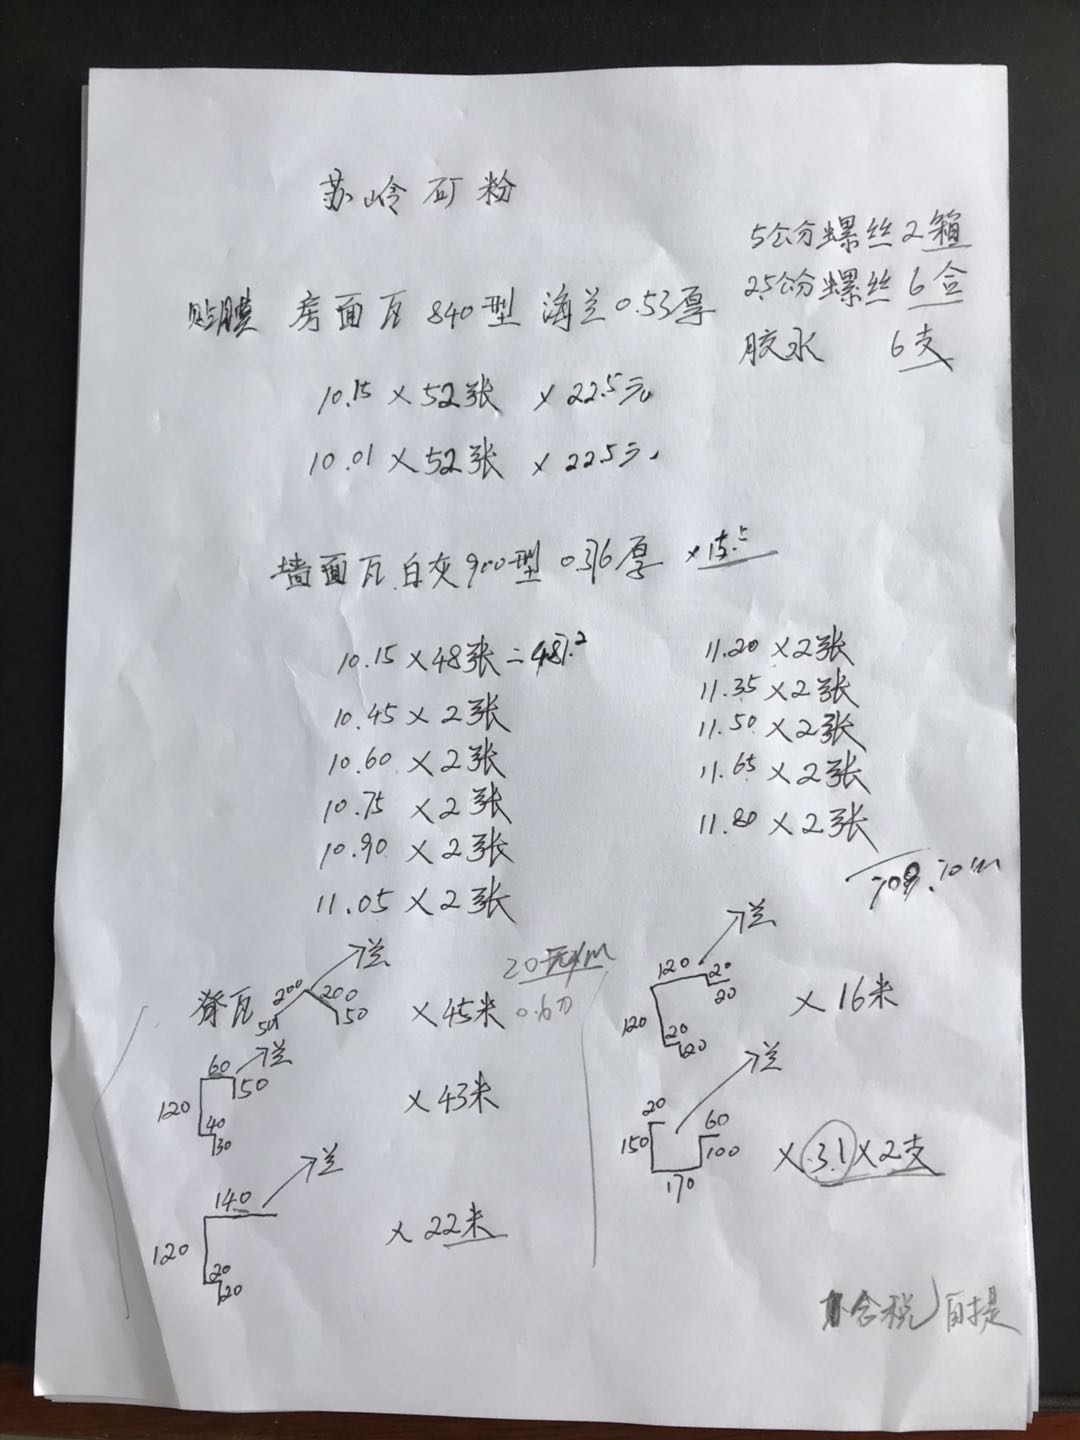 苏岭矿粉
5公分螺丝2箱
25公分螺丝6合
胶水 6支
贴膜 房面瓦840型 海兰0.53厚
10.15×52张 ×22.5元
10.01×52张 ×22.5元
墙面瓦白灰900型 0.376厚
10.15×48张=487.2
10.45×2张
10.60×2张
10.75×2张
10.90×2张
11.05×2张
11.20×2张
11.35×2张
11.50×2张
11.65×2张
11.80×2张
708.70m
脊瓦 50 200 200 50 兰 ×45米
20元/m
60 兰 50
120 40 30
×43米
140 兰
120 20 20
×22米
120 20 20 兰
120 20 20
×16米
兰
20 60
150 100
170
×3.1×2支
含税 自提